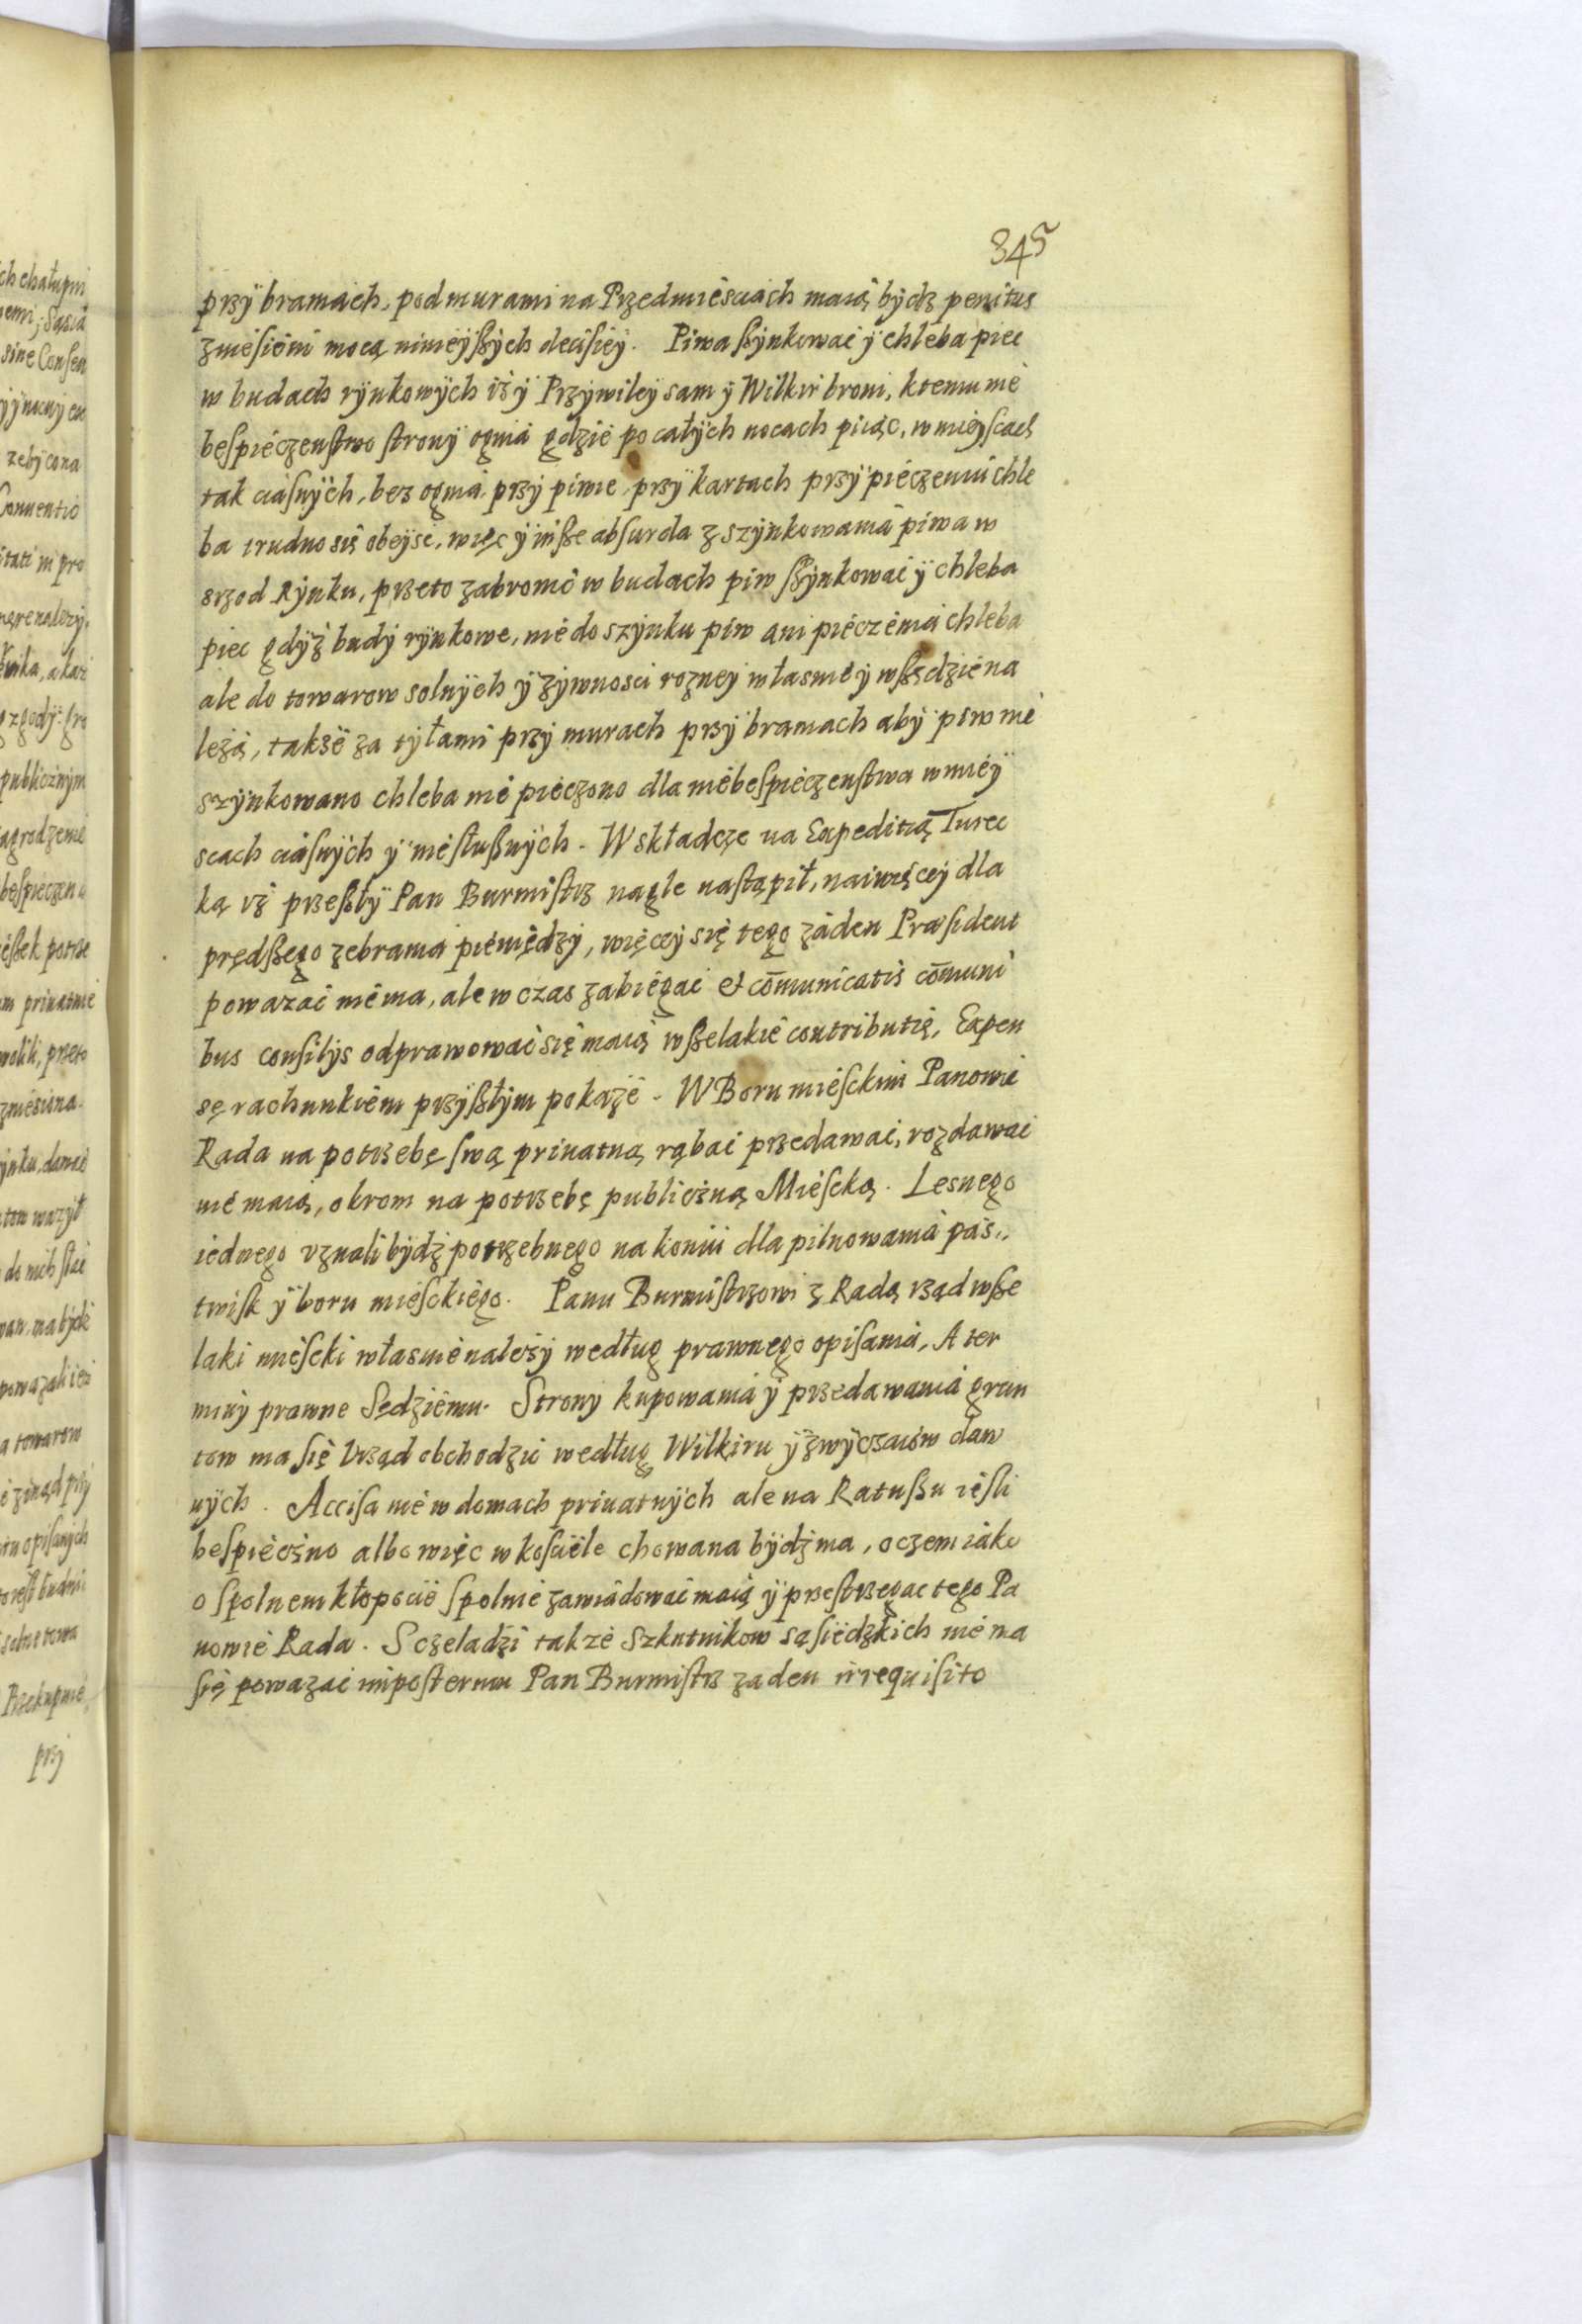 345
przÿ bramach, pod murami na Przedmiesciach maią bÿdz penitus
zniesieni mocą ninieÿszÿch decisieÿ. Piwa szÿnkowac ÿ chleba piec
w budach rÿnkowÿch iż ÿ Przÿwileÿ sam ÿ Wilkir broni, ktemu nie
bespieczenstwo stronÿ ognia gdzie po całÿch nocach piiąc, w mieÿscach
tak ciasnÿch, bez ognia przÿ piwie przÿ kartach przÿ pieczeniu chle
ba trudno sie obeÿsc, więc ÿ insze absurda z szÿnkowania piwa w
srzod Rÿnku, przeto zabroniono w budach piw szÿnkowac ÿ chleba
piec gdÿż budÿ rÿnkowe, nie do szÿnku piw ani pieczenia chleba
ale do towarow solnÿch ÿ żÿwnosci rozneÿ własnie ÿ wszędzie na
leżą, także za tÿłami przÿ murach przÿ bramach abÿ piw nie
szÿnkowano chleba nie pieczono dla niebespieczenstwa w mieÿ
scach ciasnÿch ÿ niesłusznÿch. W składcze na Expeditią Turec
ką iż przeszłÿ Pan Burmistrz nagle nastąpił, naiwięceÿ dla
prędszego zebrania pieniędzÿ, więceÿ się tego żaden Præsident
powazac niema, ale wczas zabiegac et com̄unicatis com̄uni
bus consilÿs odprawowac się maią wszelakie contributię, Expen
sę rachunkiem przÿszłÿm pokaże. W Boru miesckim Panowie
Rada na potrzebę swą priuatną rąbac przedawac, rozdawac
nie maią, okrom na potrzebę publiczną Miescką. Lesnego
iednego uznali bÿdz potrzebnego na koniu dla pilnowania pas,,
twisk ÿ boru miesckiego. Panu Burmistrzowi z Radą rząd wsze
laki miescki własnie należÿ według prawnego opisania, A ter
minÿ prawne Sędziemu. Stronÿ kupowania ÿ przedawania grun
tow ma się Urząd obchodzic według Wilkiru ÿ zwÿczaiow daw
nÿch. Accisa nie w domach priuatnÿch ale na Ratuszu iesli
bespieczno albo więc w kosciele chowana bÿdz ma, o czem iako
o spolnem kłopocie spolnie zawiadowac maią ÿ przestrzegac tego Pa
nowie Rada. S czeladzi także Szkutnikow sąsiedzkich nie ma
się powazac imposterum Pan Burmistrz zaden irrequisito